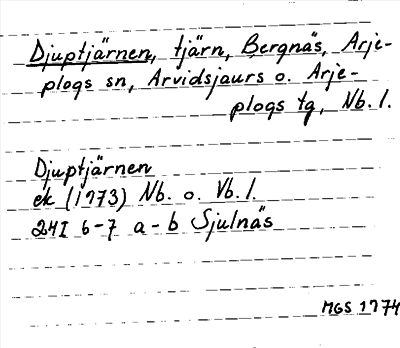 Djuptjärnen, tjärn, Bergnäs, Arje-
plogs sn, Arvidsjaurs o. Arje-
plogs tg, Nb. l.
Djuptjärnen
ek (1973) Nb. o. Vb. l.
24I 6-7 a-b Sjulnäs
MGS 1974